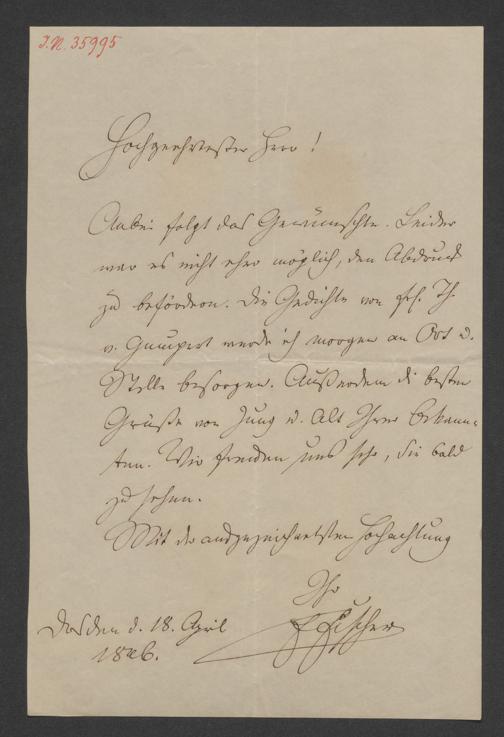 J.N. 35995
Hochgeehrtester Herr!
Anbei folgt das Gewünschte. Leider
war es nicht eher möglich, den Abdruck
zu befördern. Die Gedichte von Frl. Th.
v. Gumpert werde ich morgen an Ort u.
Stelle besorgen. Außerdem die besten
Grüße von Jung u. Alt Ihrer Bekann-
ten. Wir freuen uns sehr, Sie bald
zu sehen.
Mit der ausgezeichnetsten Hochachtung
Ihr
Fischer
Dresden d. 18. April